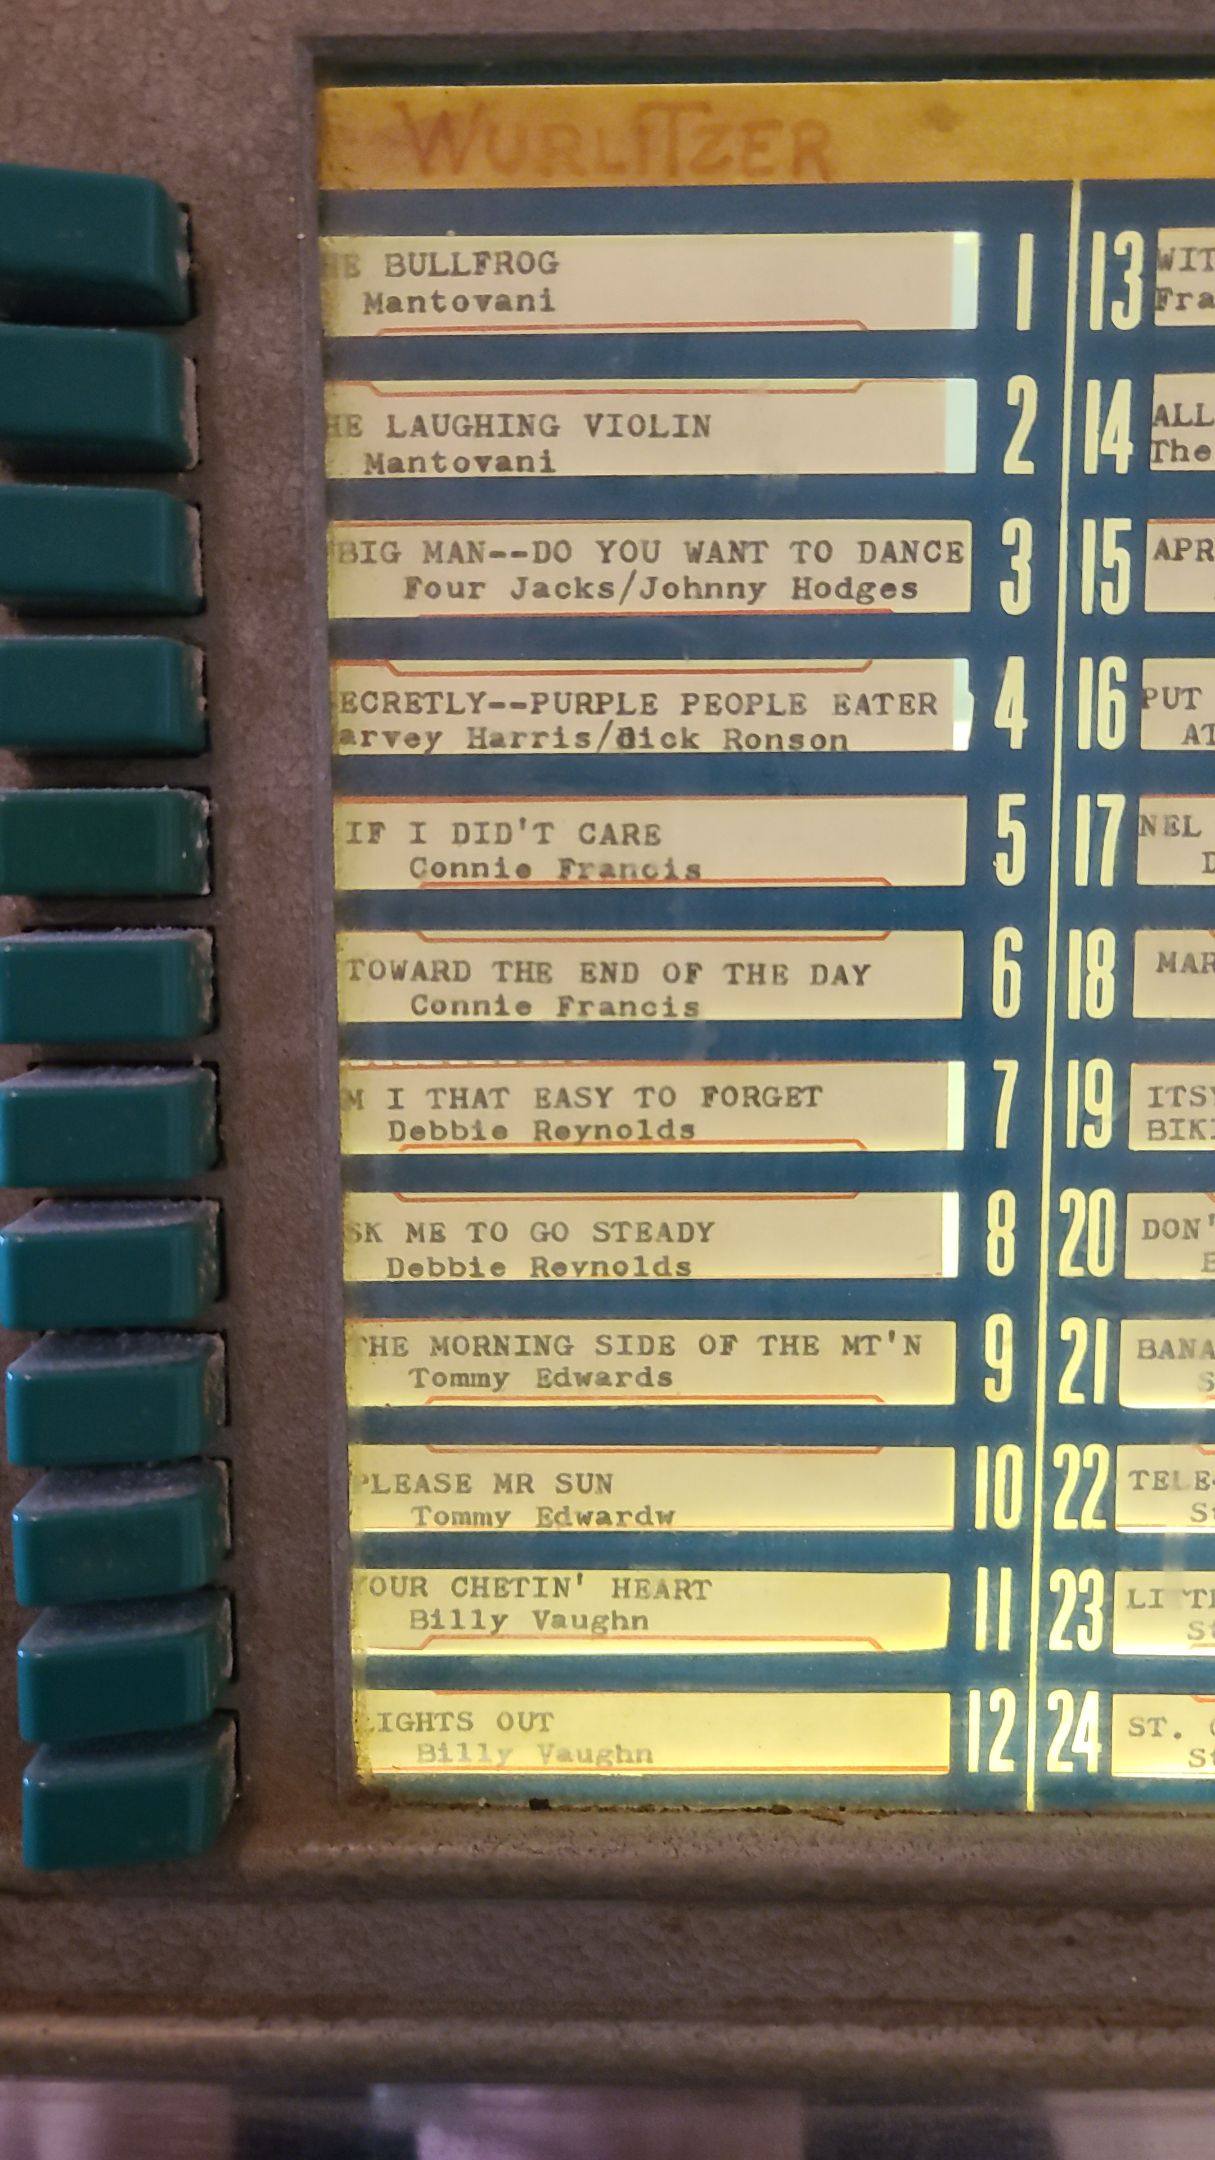 WURLITZER
HE BULLFROG
Mantovani
1
HE LAUGHING VIOLIN
Mantovani
2
BIG MAN--DO YOU WANT TO DANCE
Four Jacks/Johnny Hodges
3
ECRETLY--PURPLE PEOPLE EATER
arvey Harris/dick Ronson
4
IF I DID'T CARE
Connie Francis
5
TOWARD THE END OF THE DAY
Connie Francis
6
M I THAT EASY TO FORGET
Debbie Reynolds
7
SK ME TO GO STEADY
Debbie Reynolds
8
THE MORNING SIDE OF THE MT'N
Tommy Edwards
9
PLEASE MR SUN
Tommy Edwardw
10
OUR CHETIN' HEART
Billy Vaughn
11
IGHTS OUT
Billy Vaughn
12
13
WIT
Fra
14
ALL
The
15
APR
16
PUT
AT
17
NEL
D
18
MAR
19
ITSY
BIKI
20
DON'
21
BANA
S
22
TELE
St
23
LITTL
St
24
ST.
St